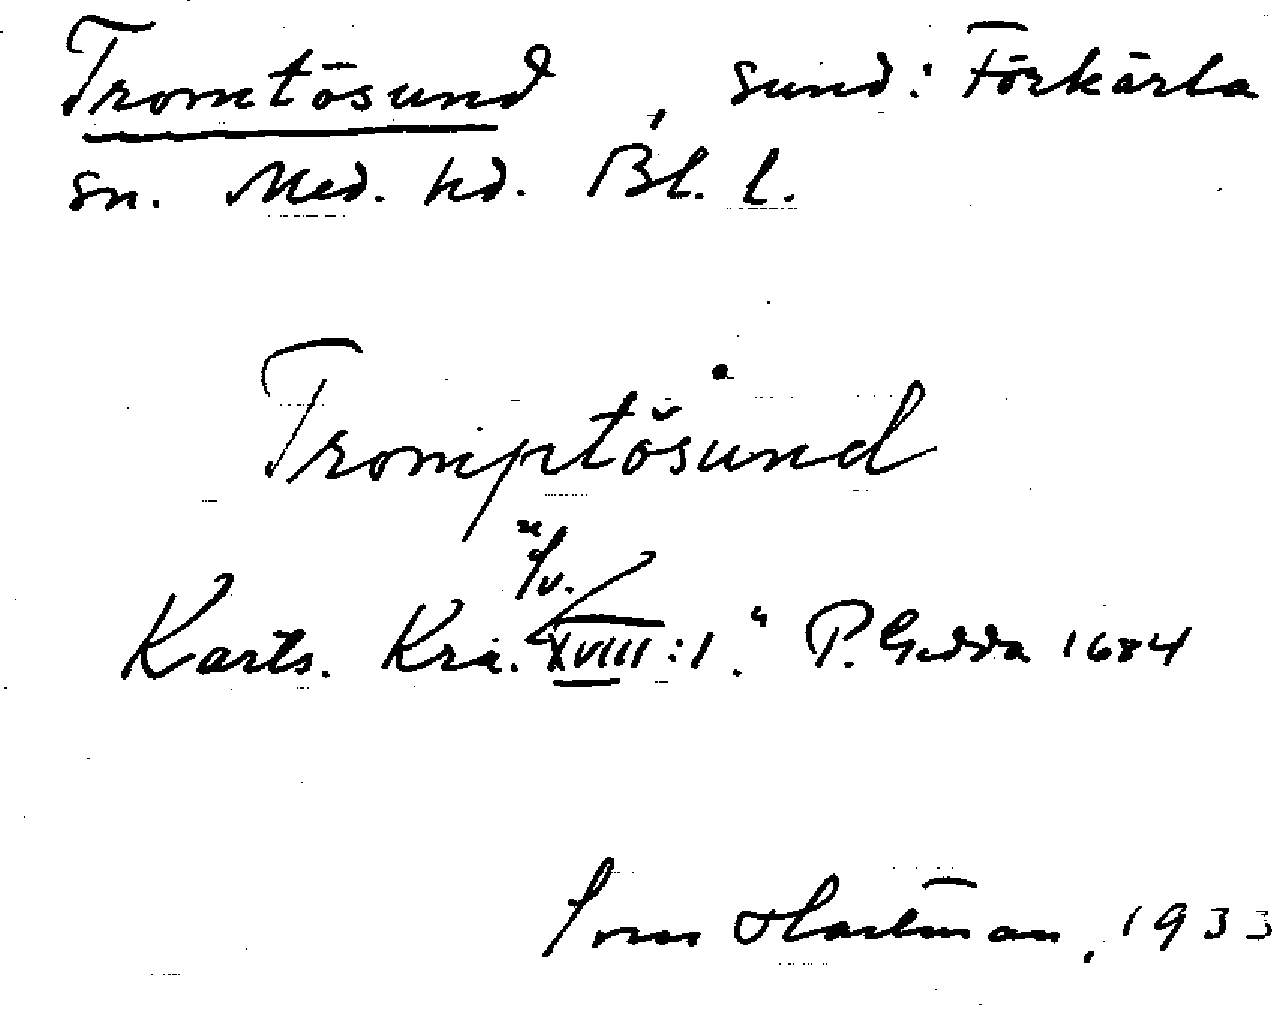 Tromtösund, sund: Förkärla
sn. Med. hd. Bl. l.
Tromptösund
Karts. Kra. XVIII:1." P. Gedda 1684
Hartman, 1933